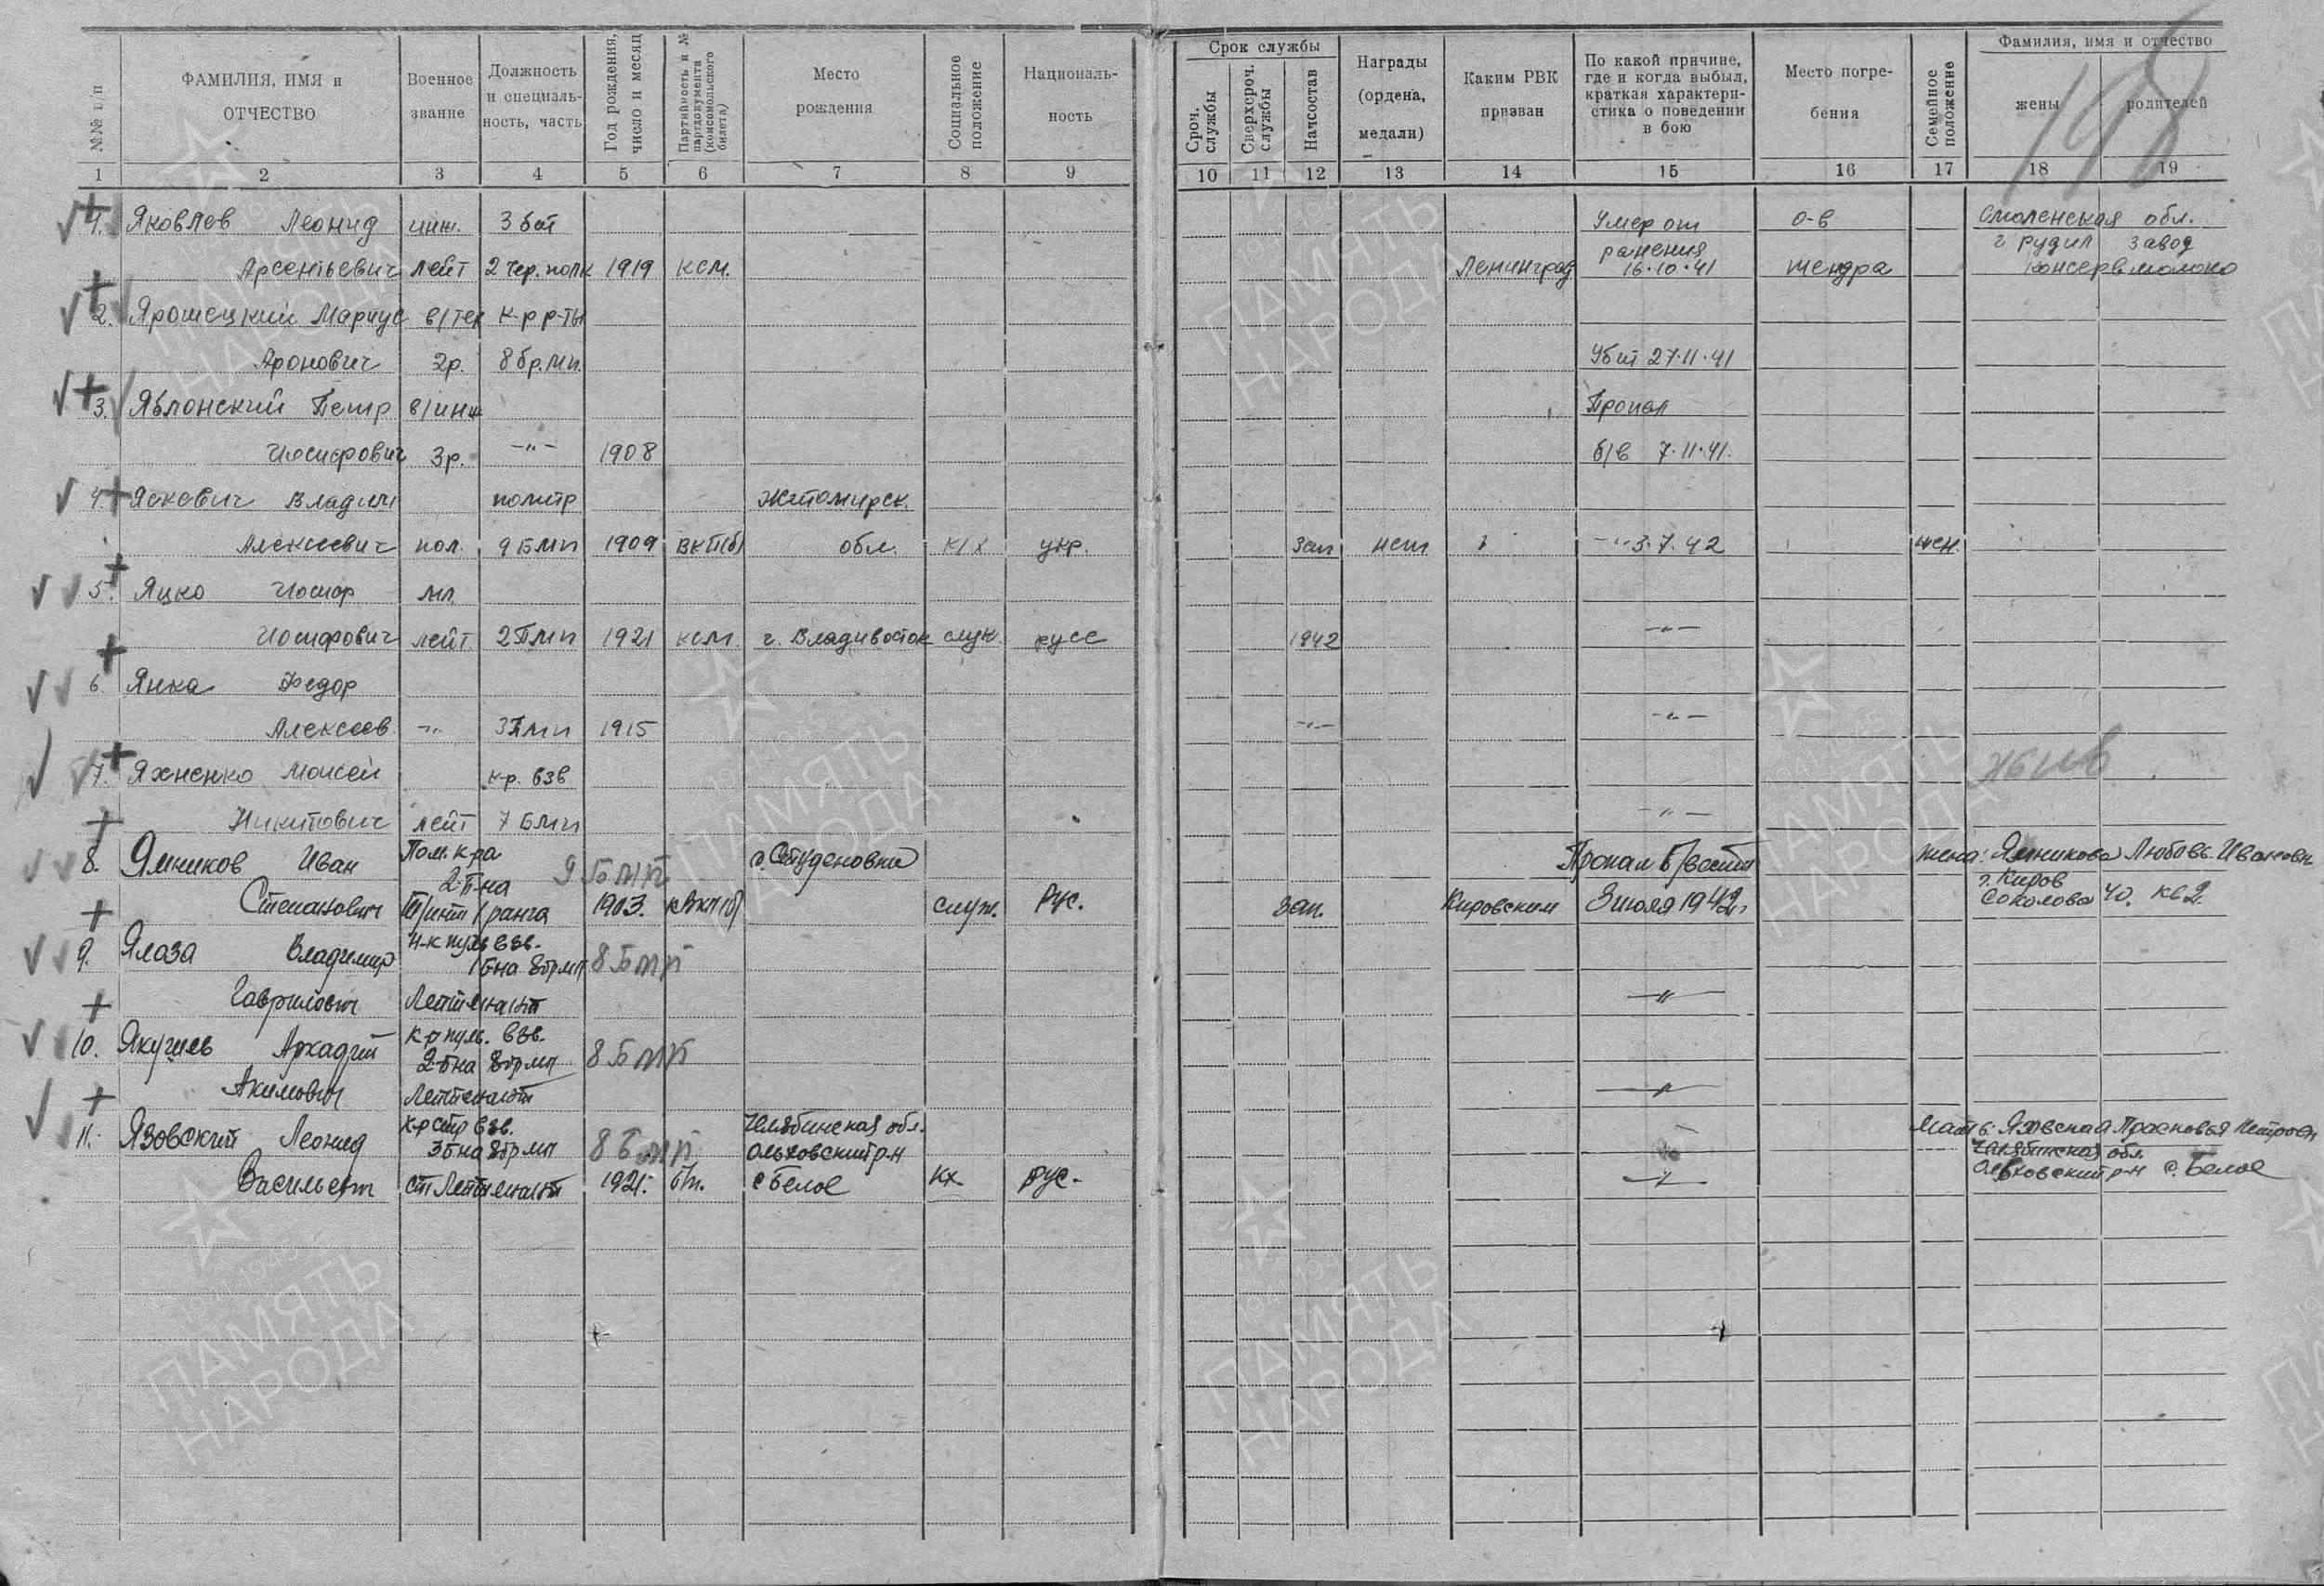 №№ п/п
ФАМИЛИЯ, ИМЯ и ОТЧЕСТВО
Военное звание
Должность и специальность, часть
Год рождения, число и месяц
Партийность и № партдокумента (комсомольского билета)
Место рождения
Социальное положение
Националь-ность
Срок службы
Сроч. службы
Сверхсроч. службы
Начсостав
Награды (ордена, медали)
Каким РВК призван
По какой причине, где и когда выбыл, краткая характери-стика о поведении в бою
Место погре-бения
Семейное положение
Фамилия, имя и отчество
жены
родителей
198
1 2 3 4 5 6 7 8 9 10 11 12 13 14 15 16 17 18 19
1. Яковлев Леонид инж. 3 бат Умер от о-в Смоленская обл.
ранения г Рудня завод
Арсентьевич лейт 2 Чер. полк 1919 ксм. Ленинград 16.10.41 Тендра консерв молоко
2. Ярошецкий Мариус в/тех к-р р-ты
Аронович 2р. 8 бр.мп. Убит 27.11.41
3. Яблонский Петр в/инж Пропал
Иосифович 3р. —"— 1908 б/в 7.11.41.
4. Яскевич Владим политр Житомирск.
Алексеевич пол. 9 БМП 1909 ВКП(б) обл. к/х укр. зап нет —"— 3.7.42 жен.
5. Яцко Иосиф мл.
Иосифович лейт. 2ПМП 1921 ксм г. Владивосток служ. русс 1942 —"—
6. Янка Федор
Алексеев. —"— 3ПМП 1915 —"— —"—
7. Яхненко Моисей кр. взв жив
Никитович лейт 7 БМП —"—
8. Ямников Иван Пом. к-ра 9 БМП с. Студеновка Пропал б/вести жена: Ямникова Любовь Ивановн
2 б-на г. Киров
Степанович ранга 1903. служ. Рус. зап. Кировским 3 июля 1942г. Соколова 40. кв 2.
9. Ялоза Владимир Н-к пул взв.
1 б-на 8брмп 8 БМП
Гаврилович Лейтенант —"—
10. Якушев Аркадий К-р пул. взв.
2-б-на 8брмп 8 БМП
Акимович Лейтенант —"—
11. Язовский Леонид К-р стр взв. Челябинская обл. Мать: Язовская Прасковья Петровн
3 б-на 8брмп 8 БМП Ольховский р-н Челябинская обл.
Васильевич ст Лейтенант 1921. б/п. с Белое Кх. Рус. —"— Ольховский р-н с. Белое
ПАМЯТЬ НАРОДА